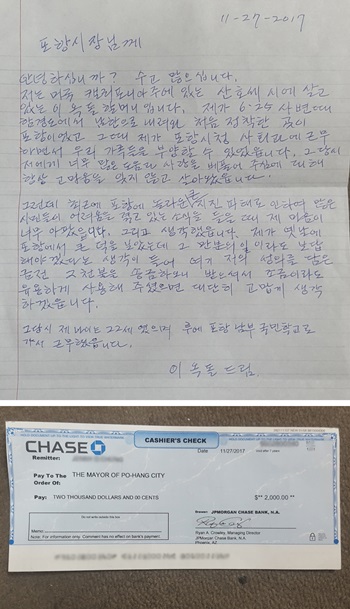 11-27-2017
포항시장님께
안녕하십니까? 수고 많으십니다.
저는 미국 캘리포니아주에 있는 산호세 시에 살고
있는 이옥돌 할머니입니다. 제가 6·25 사변때
함경도에서 남한으로 내려와 처음 정착한 곳이
포항이었고 그때 제가 포항시청 사회과에 근무
하면서 우리 가족들을 부양할 수 있었읍니다. 그 당시
저에게 너무 많은 도움과 사랑을 베풀어 주신데 대해
항상 고마움을 잊지 않고 살아왔읍니다.
그런데 최근에 포항에 놀라운 큰 지진 피해로 인하여 많은
시민들이 어려움을 겪고 있는 소식을 듣는 때 제 마음이
너무 아팠읍니다. 그리고 생각했읍니다. 제가 옛날에
포항에서 큰 덕을 보았는데 그 만분의 일이라도 보답
해야 겠다는 생각이 들어 여기 저의 성의를 담은
금전 2천불을 송금하오니 받으셔서 조금이라도
유용하게 사용해 주셨으면 대단히 고맙게 생각
하겠읍니다.
그당시 제 나이는 22세 였으며 후에 포항 남부 국민학교로
가서 근무했읍니다.
이 옥 돌 드림.
CHASE
CASHIER'S CHECK
Remitter:
Date 11/27/2017
Pay To The THE MAYOR OF PO-HANG CITY
Order Of:
Pay: TWO THOUSAND DOLLARS AND 00 CENTS $** 2,000.00 **
Do not write outside this box
Drawer: JPMORGAN CHASE BANK, N.A.
Memo:
Note: For information only. Comment has no effect on bank's payment.
Ryan A. Crowley, Managing Director
JPMorgan Chase Bank, N.A.
Phoenix, AZ